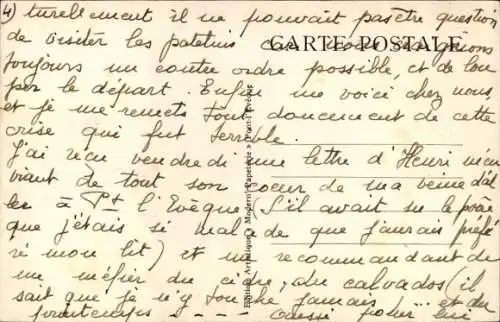 4) turellement il ne pouvait pas être question
de visiter les patelins car nous craignions
CARTE POSTALE
toujours un contre ordre possible, et de louper
le départ. Enfin me voici chez nous,
et je me remets tout doucement de cette
crise qui fut terrible.
J'ai reçu vendredi une lettre d'Henri m'écri
vant de tout son coeur de ma veine d'al
ler à Pt l'Evêque (s'il avait su le pôvre
que j'étais si malade que j'aurais préfé
ré mon lit) et me recommandant de
me méfier du cidre, du calvados (il
sait que je n'y touche jamais ... et du
printemps - - - - Aussi pour lui
Edition Artistique Modern' Papeterie à Pont-l'Evêque